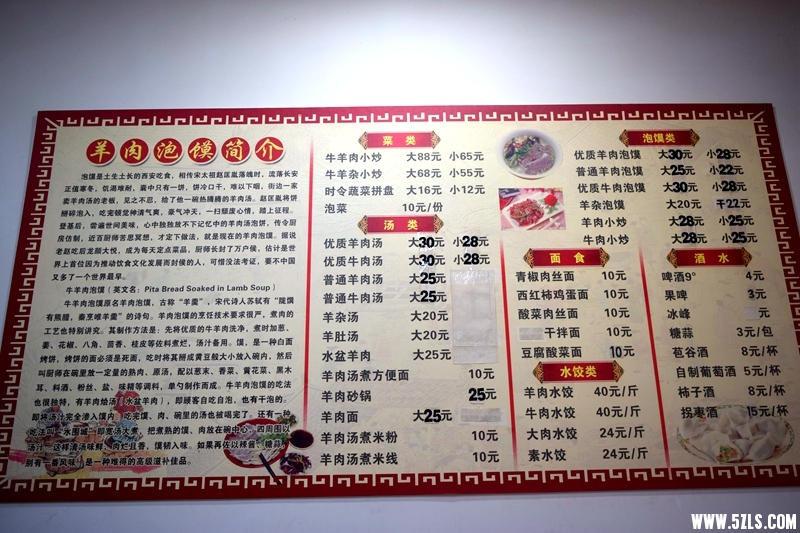 羊肉泡馍简介
泡馍是土生土长的西安吃食，相传宋太祖赵匡胤落魄时，流落长安
正值寒冬，饥渴难耐，囊中只有一饼，饼冷口干，难以下咽，街边一家
卖羊肉汤的老板，见之不忍，给了他一碗热腾腾的羊肉汤。赵匡胤将饼
掰碎泡入，吃完顿觉神清气爽，豪气冲天，一扫颓废心情，踏上征程。
登基后，尝遍世间美味，心中独独放不下记忆中的羊肉汤泡饼，传令厨
房仿制，近百厨师苦思冥想，才定下做法，就是现在的羊肉泡馍。据说
老赵吃后龙颜大悦，成为每天定点菜品，厨师长封了万户侯，估计是世
界上首位因为推动饮食文化发展而封侯的人，可惜没法考证，要不中国
又多了一个世界最早。
牛羊肉泡馍（英文名：Pita Bread Soaked in Lamb Soup）
牛羊肉泡馍原名羊肉泡馍，古称“羊羹”，宋代诗人苏轼有“陇馔
有熊腊，秦烹唯羊羹”的诗句。羊肉泡馍的烹饪技术要求很严，煮肉的
工艺也特别讲究。其制作方法是：先将优质的牛羊肉洗净，煮时加葱、
姜、花椒、八角、茴香、桂皮等佐料煮烂，汤汁备用。馍，是一种白面
烤饼，烤饼的面必须是死面，吃时将其掰成黄豆般大小放入碗内，然后
叫厨师在碗里放一定量的熟肉、原汤，配以葱末、香菜、黄花菜、黑木
耳、料酒、粉丝、盐、味精等调料，单勺制作而成。牛羊肉泡馍的吃法
也很独特，有羊肉烩汤（水盆羊肉），即顾客自吃自泡，也有干泡的。
即将汤汁完全渗入馍内，吃完馍、肉，碗里的汤也被喝完了。还有一种
吃法叫“水围城”，即宽汤大煮，把煮熟的馍、肉放在碗中心，四周围以
汤汁，这样清汤味鲜，肉烂且香，馍韧入味，如果再佐以辣酱、糖蒜，
别有一番风味，是一种难得的高级滋补佳品。
菜 类
牛羊肉小炒 大88元 小65元
牛羊杂小炒 大68元 小55元
时令蔬菜拼盘 大16元 小12元
泡菜 10元/份
汤 类
优质羊肉汤 大30元 小28元
优质牛肉汤 大30元 小28元
普通羊肉汤 大25元
普通牛肉汤 大25元
羊杂汤 大20元
羊肚汤 大20元
水盆羊肉 大25元
羊肉汤煮方便面 10元
羊肉砂锅 25元
羊肉面 大25元
羊肉汤煮米粉 10元
羊肉汤煮米线 10元
面 食
青椒肉丝面 10元
西红柿鸡蛋面 10元
酸菜肉丝面 10元
干拌面 10元
豆腐酸菜面 10元
水饺类
羊肉水饺 40元/斤
牛肉水饺 40元/斤
大肉水饺 24元/斤
素水饺 24元/斤
泡馍类
优质羊肉泡馍 大30元 小28元
普通羊肉泡馍 大25元 小22元
优质牛肉泡馍 大30元 小28元
羊杂泡馍 大20元 干22元
羊肉小炒 大28元 小25元
牛肉小炒 大28元 小25元
酒 水
啤酒9° 4元
果啤 3元
冰峰 元
糖蒜 3元/包
苞谷酒 8元/杯
自制葡萄酒 5元/杯
柿子酒 8元/杯
拐枣酒 15元/杯
WWW.5ZLS.COM